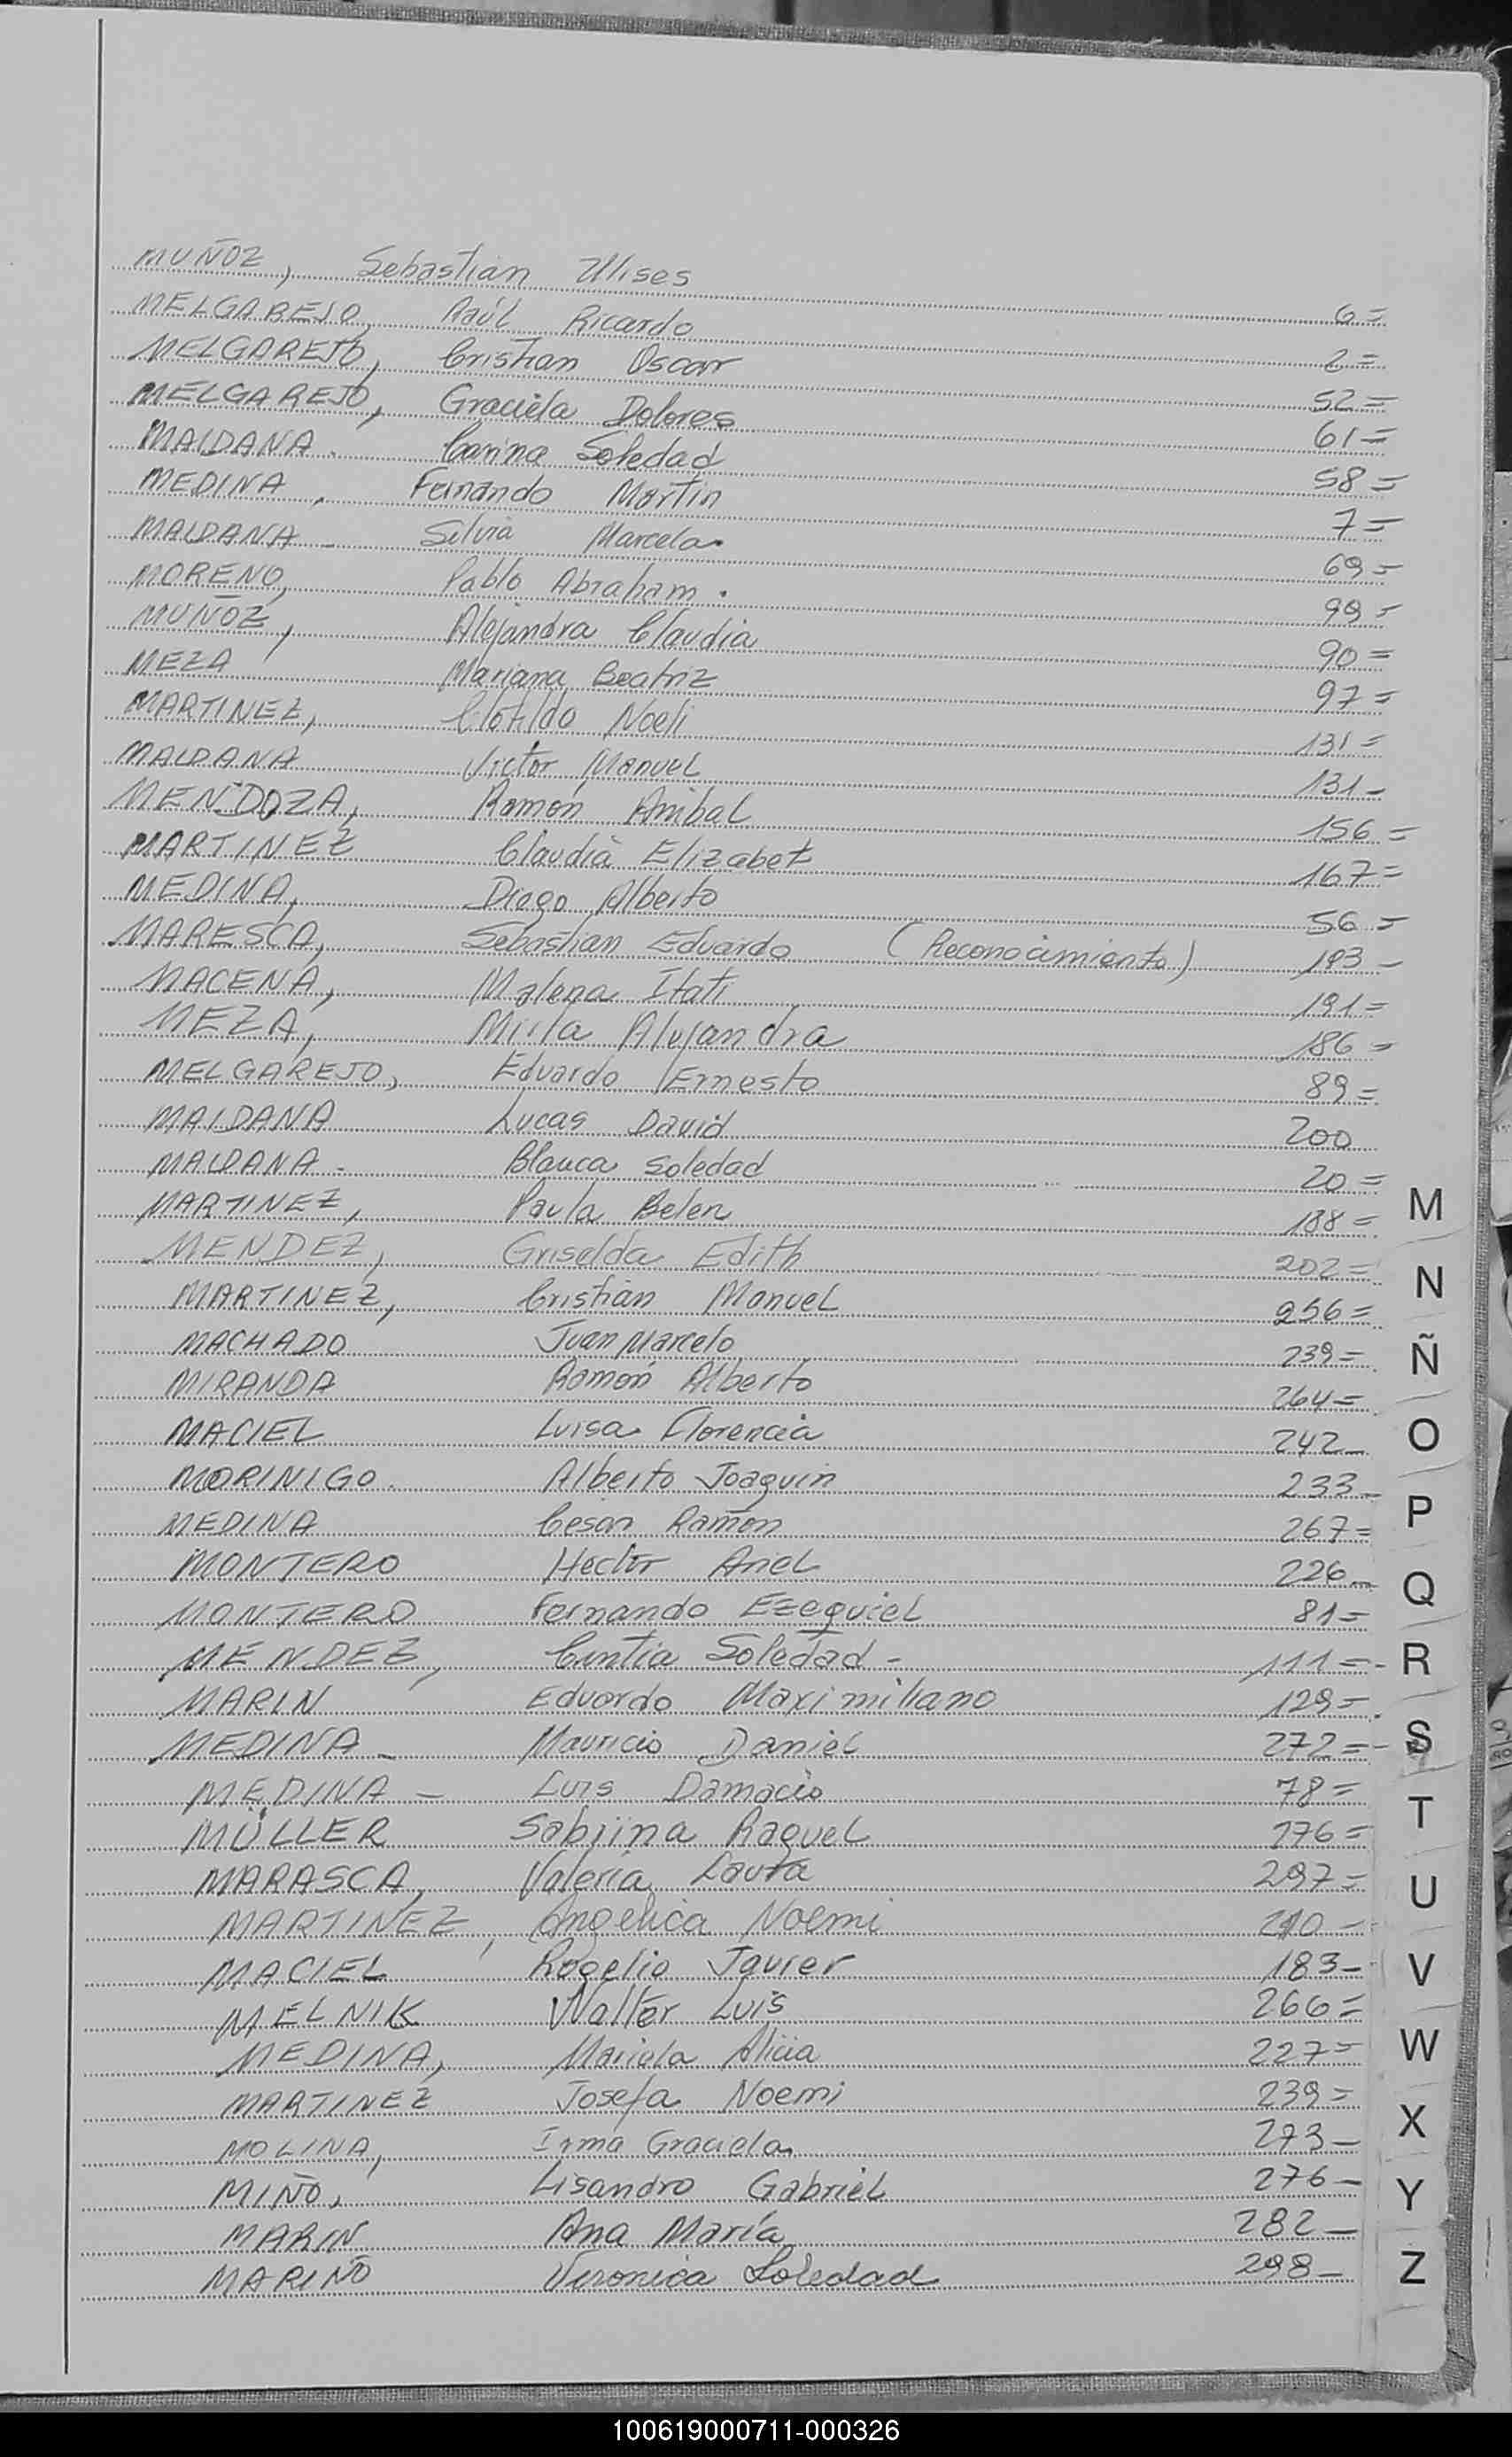 MUÑOZ, Sebastián Ulises 6=
MELGAREJO, Raúl Ricardo 2=
MELGAREJO, Cristian Oscar 52=
MELGAREJO, Graciela Dolores 61=
MALDANA. Carina Soledad 58=
MEDINA, Fernando Martín 7=
MALDANA - Silvia Marcela. 69-
MORENO, Pablo Abraham. 99-
MUÑOZ, Alejandra Claudia 90=
MEZA Mariana Beatriz 97=
MARTINEZ, Clotildo Noeli 131=
MALDANA Victor Manuel 131-
MENDOZA, Ramón Anibal 156=
MARTINEZ Claudia Elizabet 167=
MEDINA, Diego Alberto 56=
MARESCA, Sebastian Eduardo (Reconocimiento) 183-
MACENA, Malena Itatí 191=
MEZA, Mirta Alejandra 186=
MELGAREJO, Eduardo Ernesto 89=
MALDANA Lucas David 200
MALDANA - Blanca Soledad 20=
MARTINEZ, Paula Belen 188=
MENDEZ, Griselda Edith 202=
MARTINEZ, Cristian Manuel 256=
MACHADO Juan Marcelo 239=
MIRANDA Ramón Alberto 264=
MACIEL Luisa Florencia 242-
MORINIGO. Alberto Joaquin 233-
MEDINA Cesar Ramón 267=
MONTERO Hector Ariel 226-
MONTERO Fernando Ezequiel 81=
MENDEZ, Cintia Soledad - 111=-
MARIN Eduardo Maximiliano 129=
MEDINA - Mauricio Daniel 272=-
MEDINA - Luis Damacio 78=
MÜLLER Sabrina Raquel 176=
MARASCA, Valeria Laura 297=
MARTINEZ, Angelica Noemi 210-
MACIEL Rogelio Javier 183-
MELNIK Walter Luis 266=
MEDINA, Mariela Alicia 227=
MARTINEZ Josefa Noemi 239=
MOLINA, Irma Graciela 273-
MIÑO, Lisandro Gabriel 276-
MARIN Ana María 282-
MARIÑO Veronica Soledad 298-
M
N
Ñ
O
P
Q
R
S
T
U
V
W
X
Y
Z
100619000711-000326